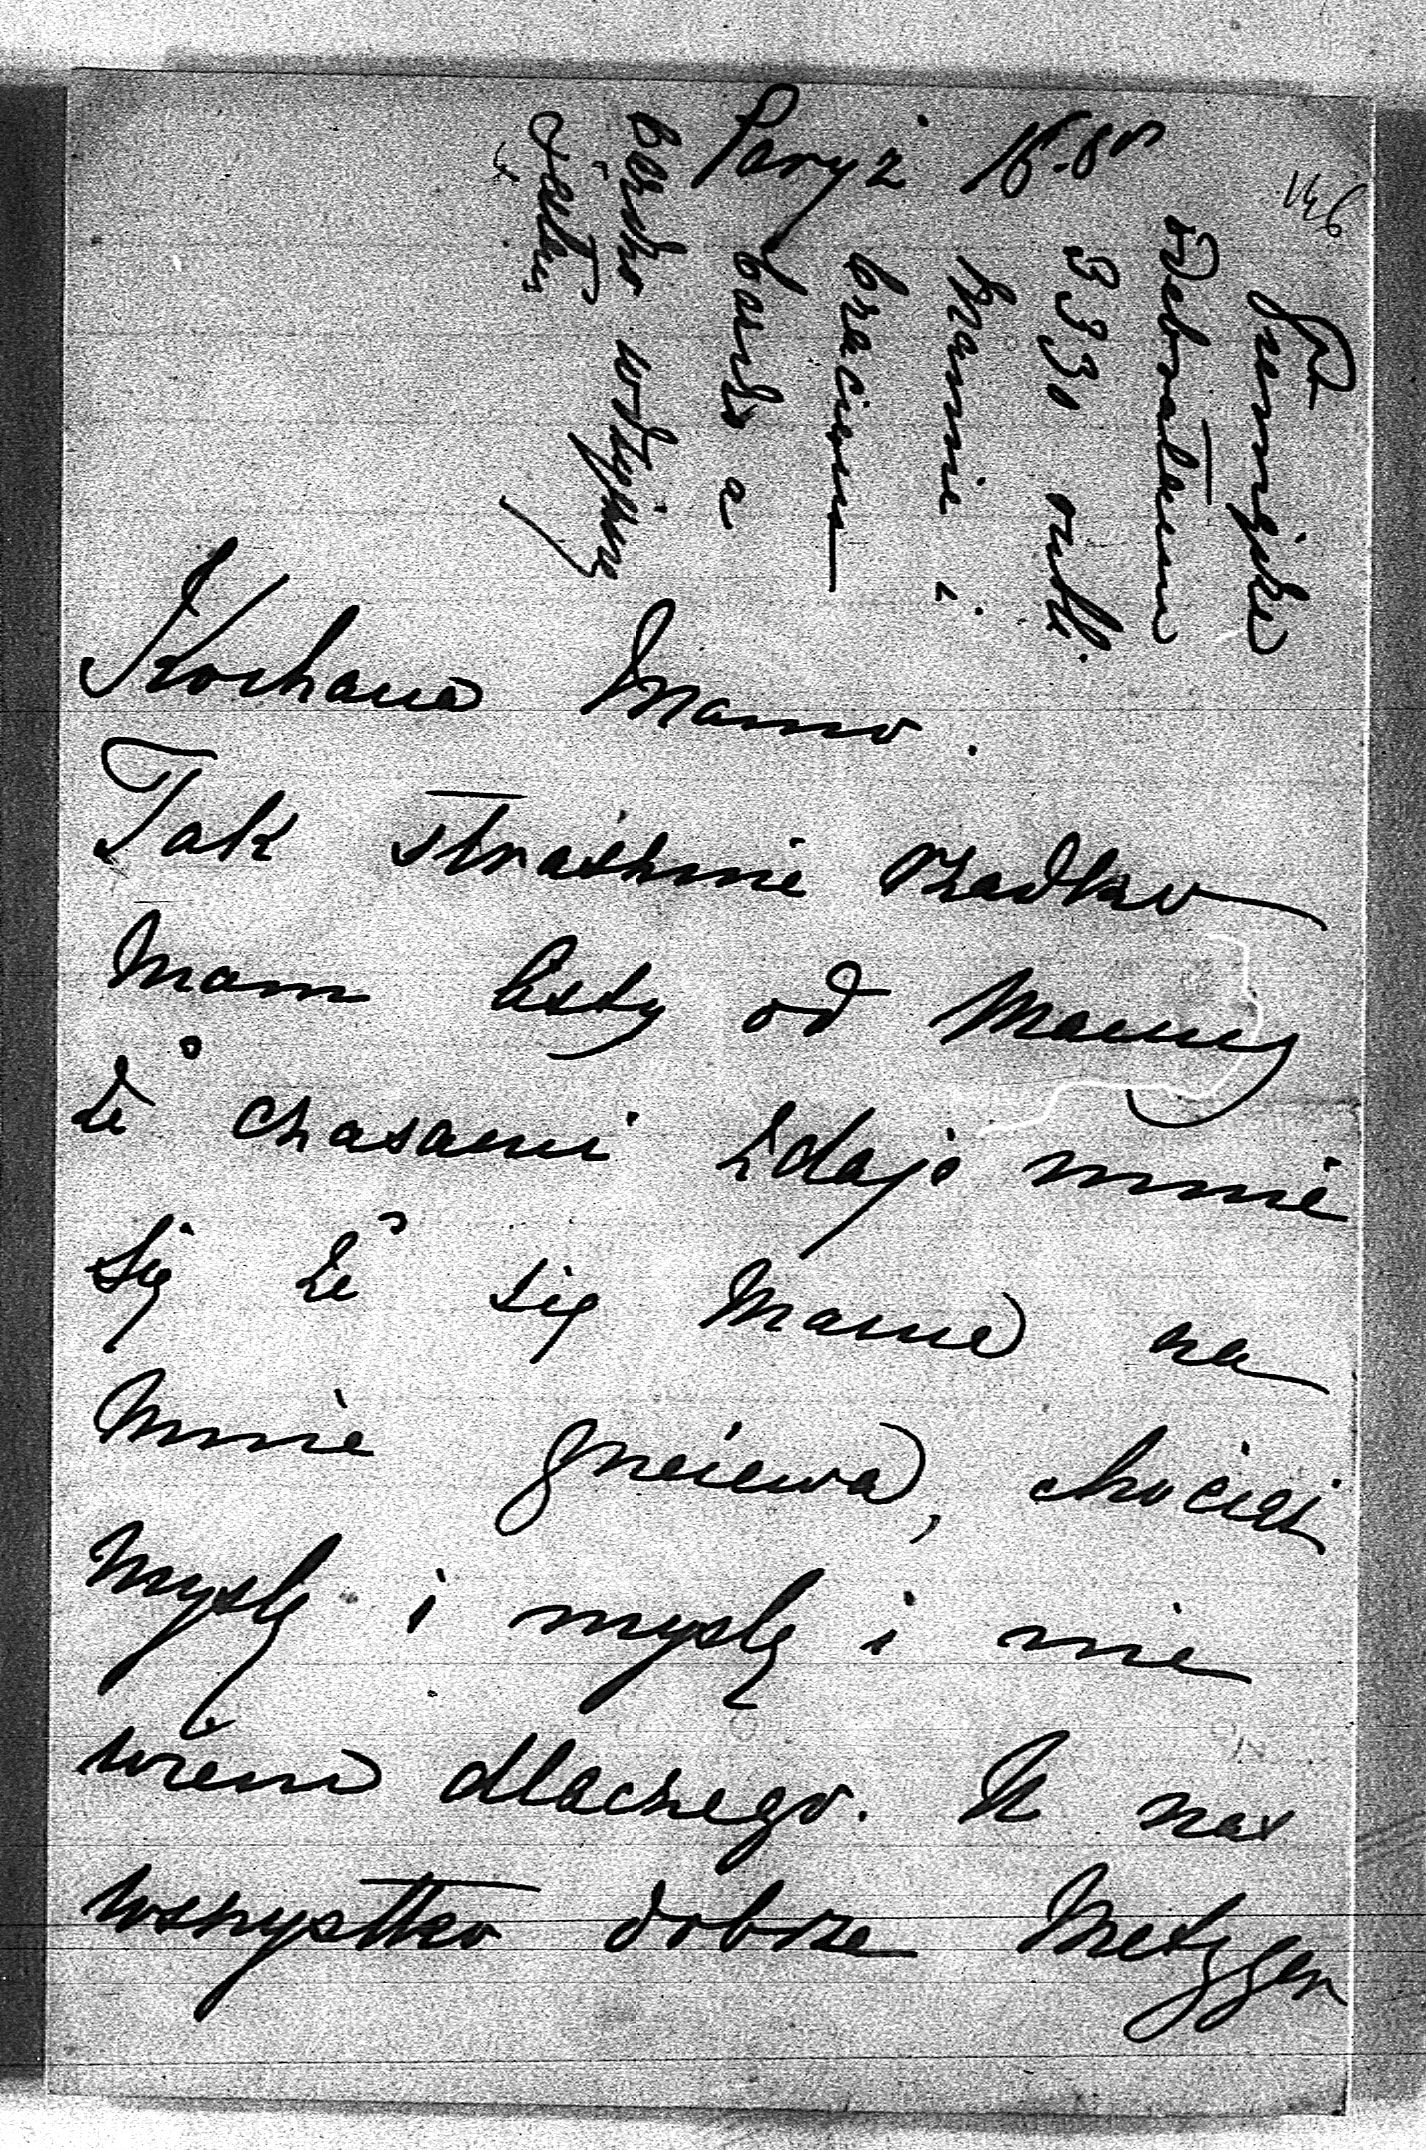 Paryż 16.85
146
Pieniądze
odebrałam
3330 rubli
Mamie i
braciom
bardzo a
bardzo dziękuję
Kochana Mamo.
Tak strasznie rzadko
mam listy od Mamy
że czasami zdaje mnie
się że się Mama na
mnie gneiewa, chociaż
myślę i myślę i nie
wiem dlaczego. U nas
wszystko dobrze Metzger